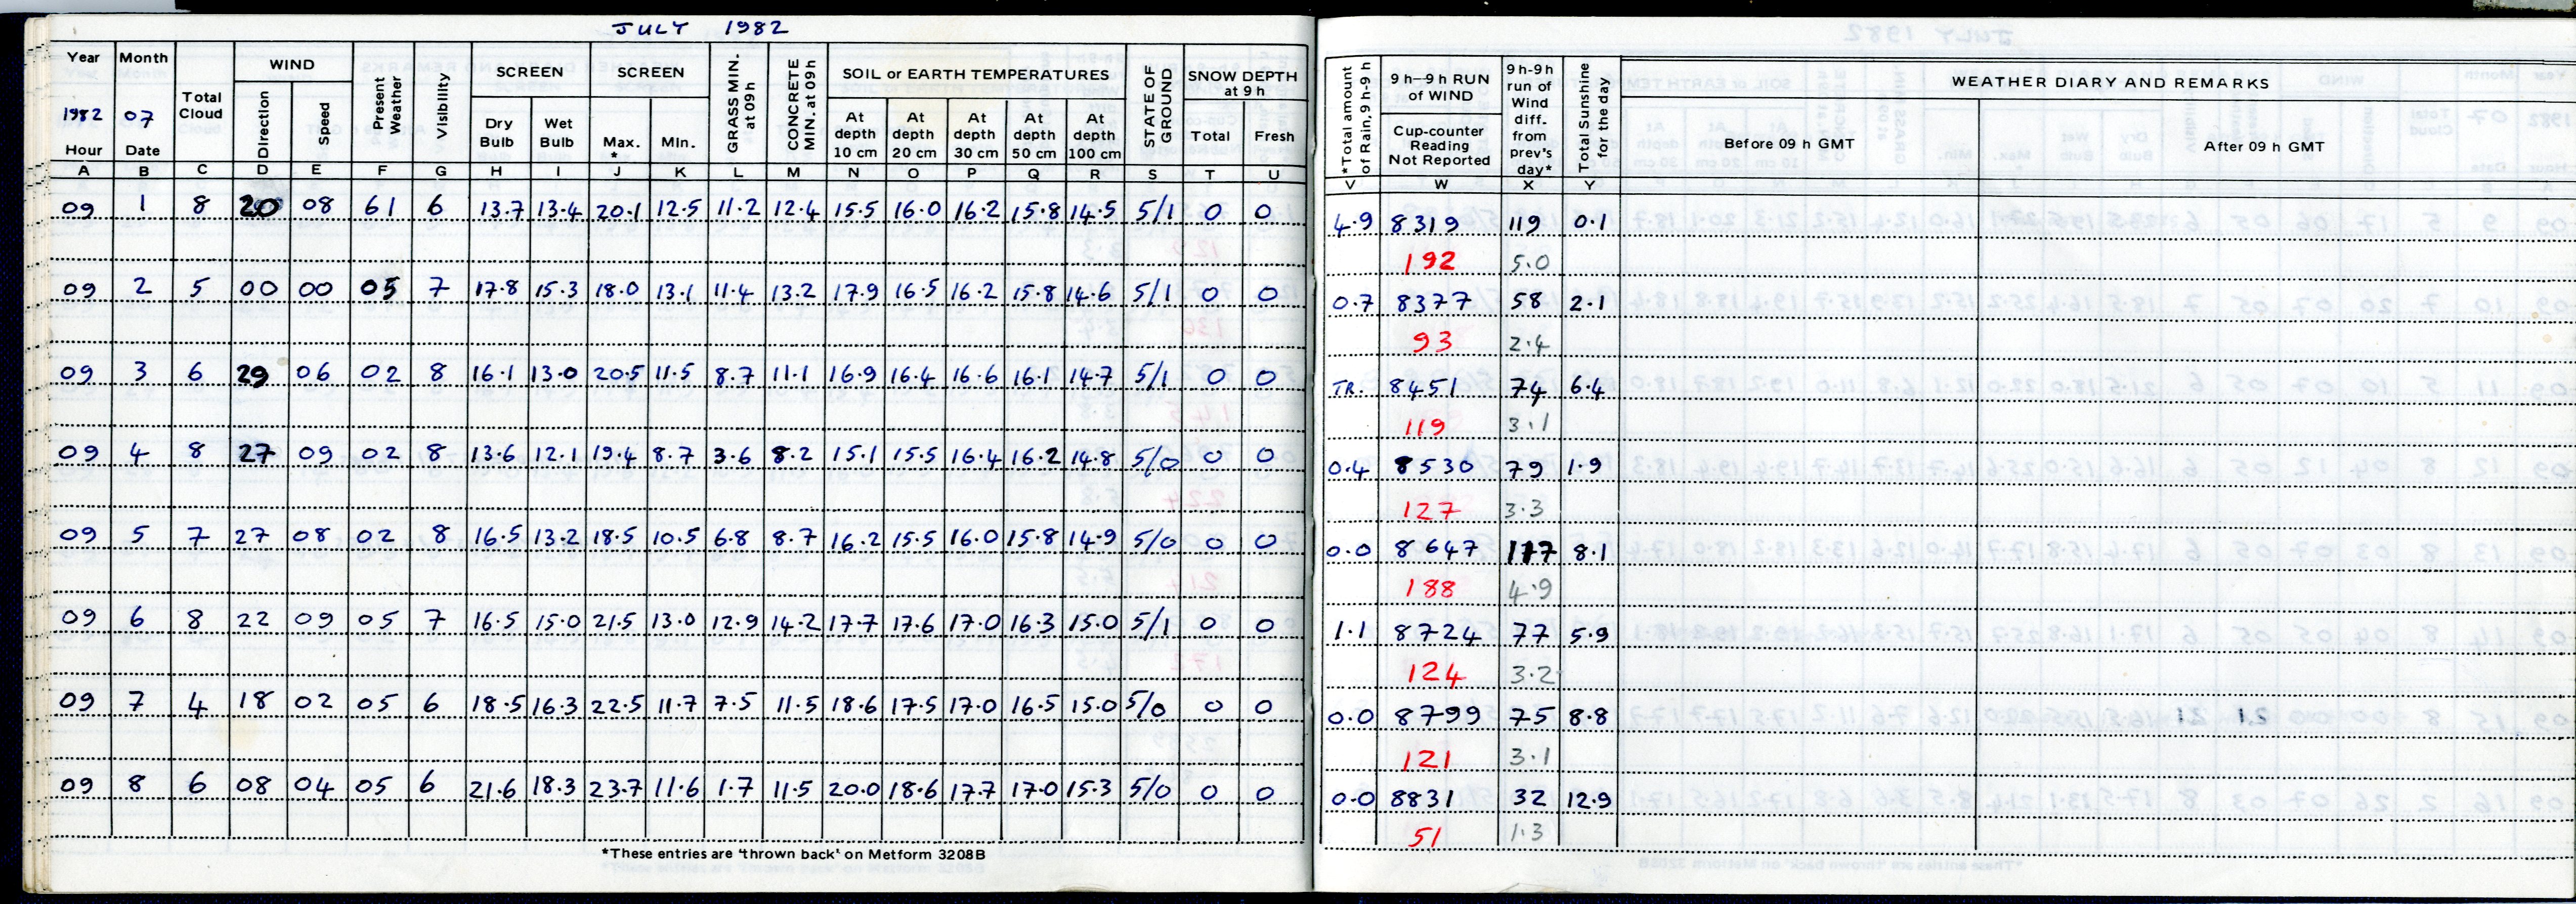 JULY 1982
Year Month Total Cloud WIND Present Weather Visibility SCREEN SCREEN GRASS MIN. at 09h CONCRETE MIN. at 09h SOIL or EARTH TEMPERATURES STATE OF GROUND SNOW DEPTH at 9 h *Total amount of Rain, 9 h-9 h 9 h–9 h RUN of WIND 9 h-9h run of Wind diff. from prev's day* Total Sunshine for the day WEATHER DIARY AND REMARKS
1982 07 Direction Speed Dry Bulb Wet Bulb Max. * Min. At depth 10 cm At depth 20 cm At depth 30 cm At depth 50 cm At depth 100 cm Total Fresh Cup-counter Reading Not Reported Before 09 h GMT After 09 h GMT
Hour Date
A B C D E F G H I J K L M N O P Q R S T U V W X Y
09 1 8 20 08 61 6 13.7 13.4 20.1 12.5 11.2 12.4 15.5 16.0 16.2 15.8 14.5 5/1 0 0 4.9 8319 119 0.1
192 5.0
09 2 5 00 00 05 7 17.8 15.3 18.0 13.1 11.4 13.2 17.9 16.5 16.2 15.8 14.6 5/1 0 0 0.7 8377 58 2.1
93 2.4
09 3 6 29 06 02 8 16.1 13.0 20.5 11.5 8.7 11.1 16.9 16.4 16.6 16.1 14.7 5/1 0 0 TR. 8451 74 6.4
119 3.1
09 4 8 27 09 02 8 13.6 12.1 19.4 8.7 3.6 8.2 15.1 15.5 16.4 16.2 14.8 5/0 0 0 0.4 8530 79 1.9
127 3.3
09 5 7 27 08 02 8 16.5 13.2 18.5 10.5 6.8 8.7 16.2 15.5 16.0 15.8 14.9 5/0 0 0 0.0 8647 117 8.1
188 4.9
09 6 8 22 09 05 7 16.5 15.0 21.5 13.0 12.9 14.2 17.7 17.6 17.0 16.3 15.0 5/1 0 0 1.1 8724 77 5.9
124 3.2
09 7 4 18 02 05 6 18.5 16.3 22.5 11.7 7.5 11.5 18.6 17.5 17.0 16.5 15.0 5/0 0 0 0.0 8799 75 8.8
121 3.1
09 8 6 08 04 05 6 21.6 18.3 23.7 11.6 1.7 11.5 20.0 18.6 17.7 17.0 15.3 5/0 0 0 0.0 8831 32 12.9
51 1.3
*These entries are 'thrown back' on Metform 3208B